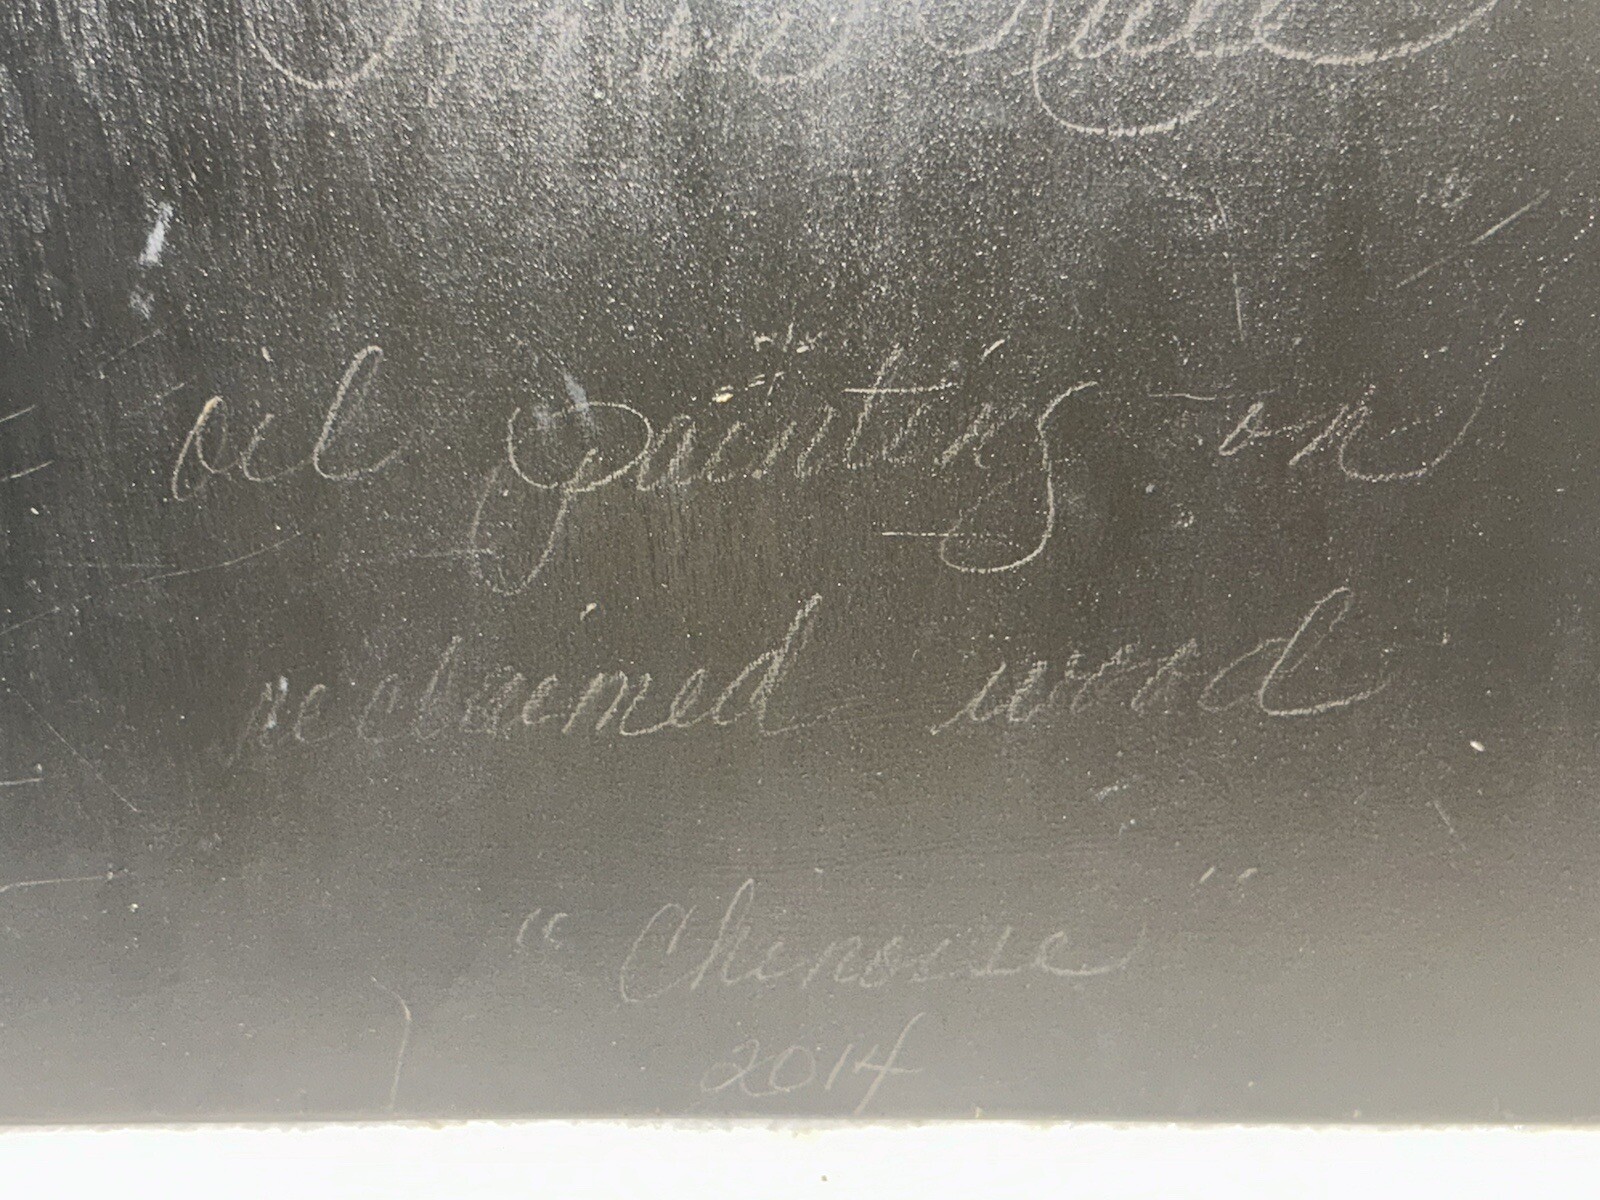 oil painting on
reclaimed wood
"Chinoise"
2014